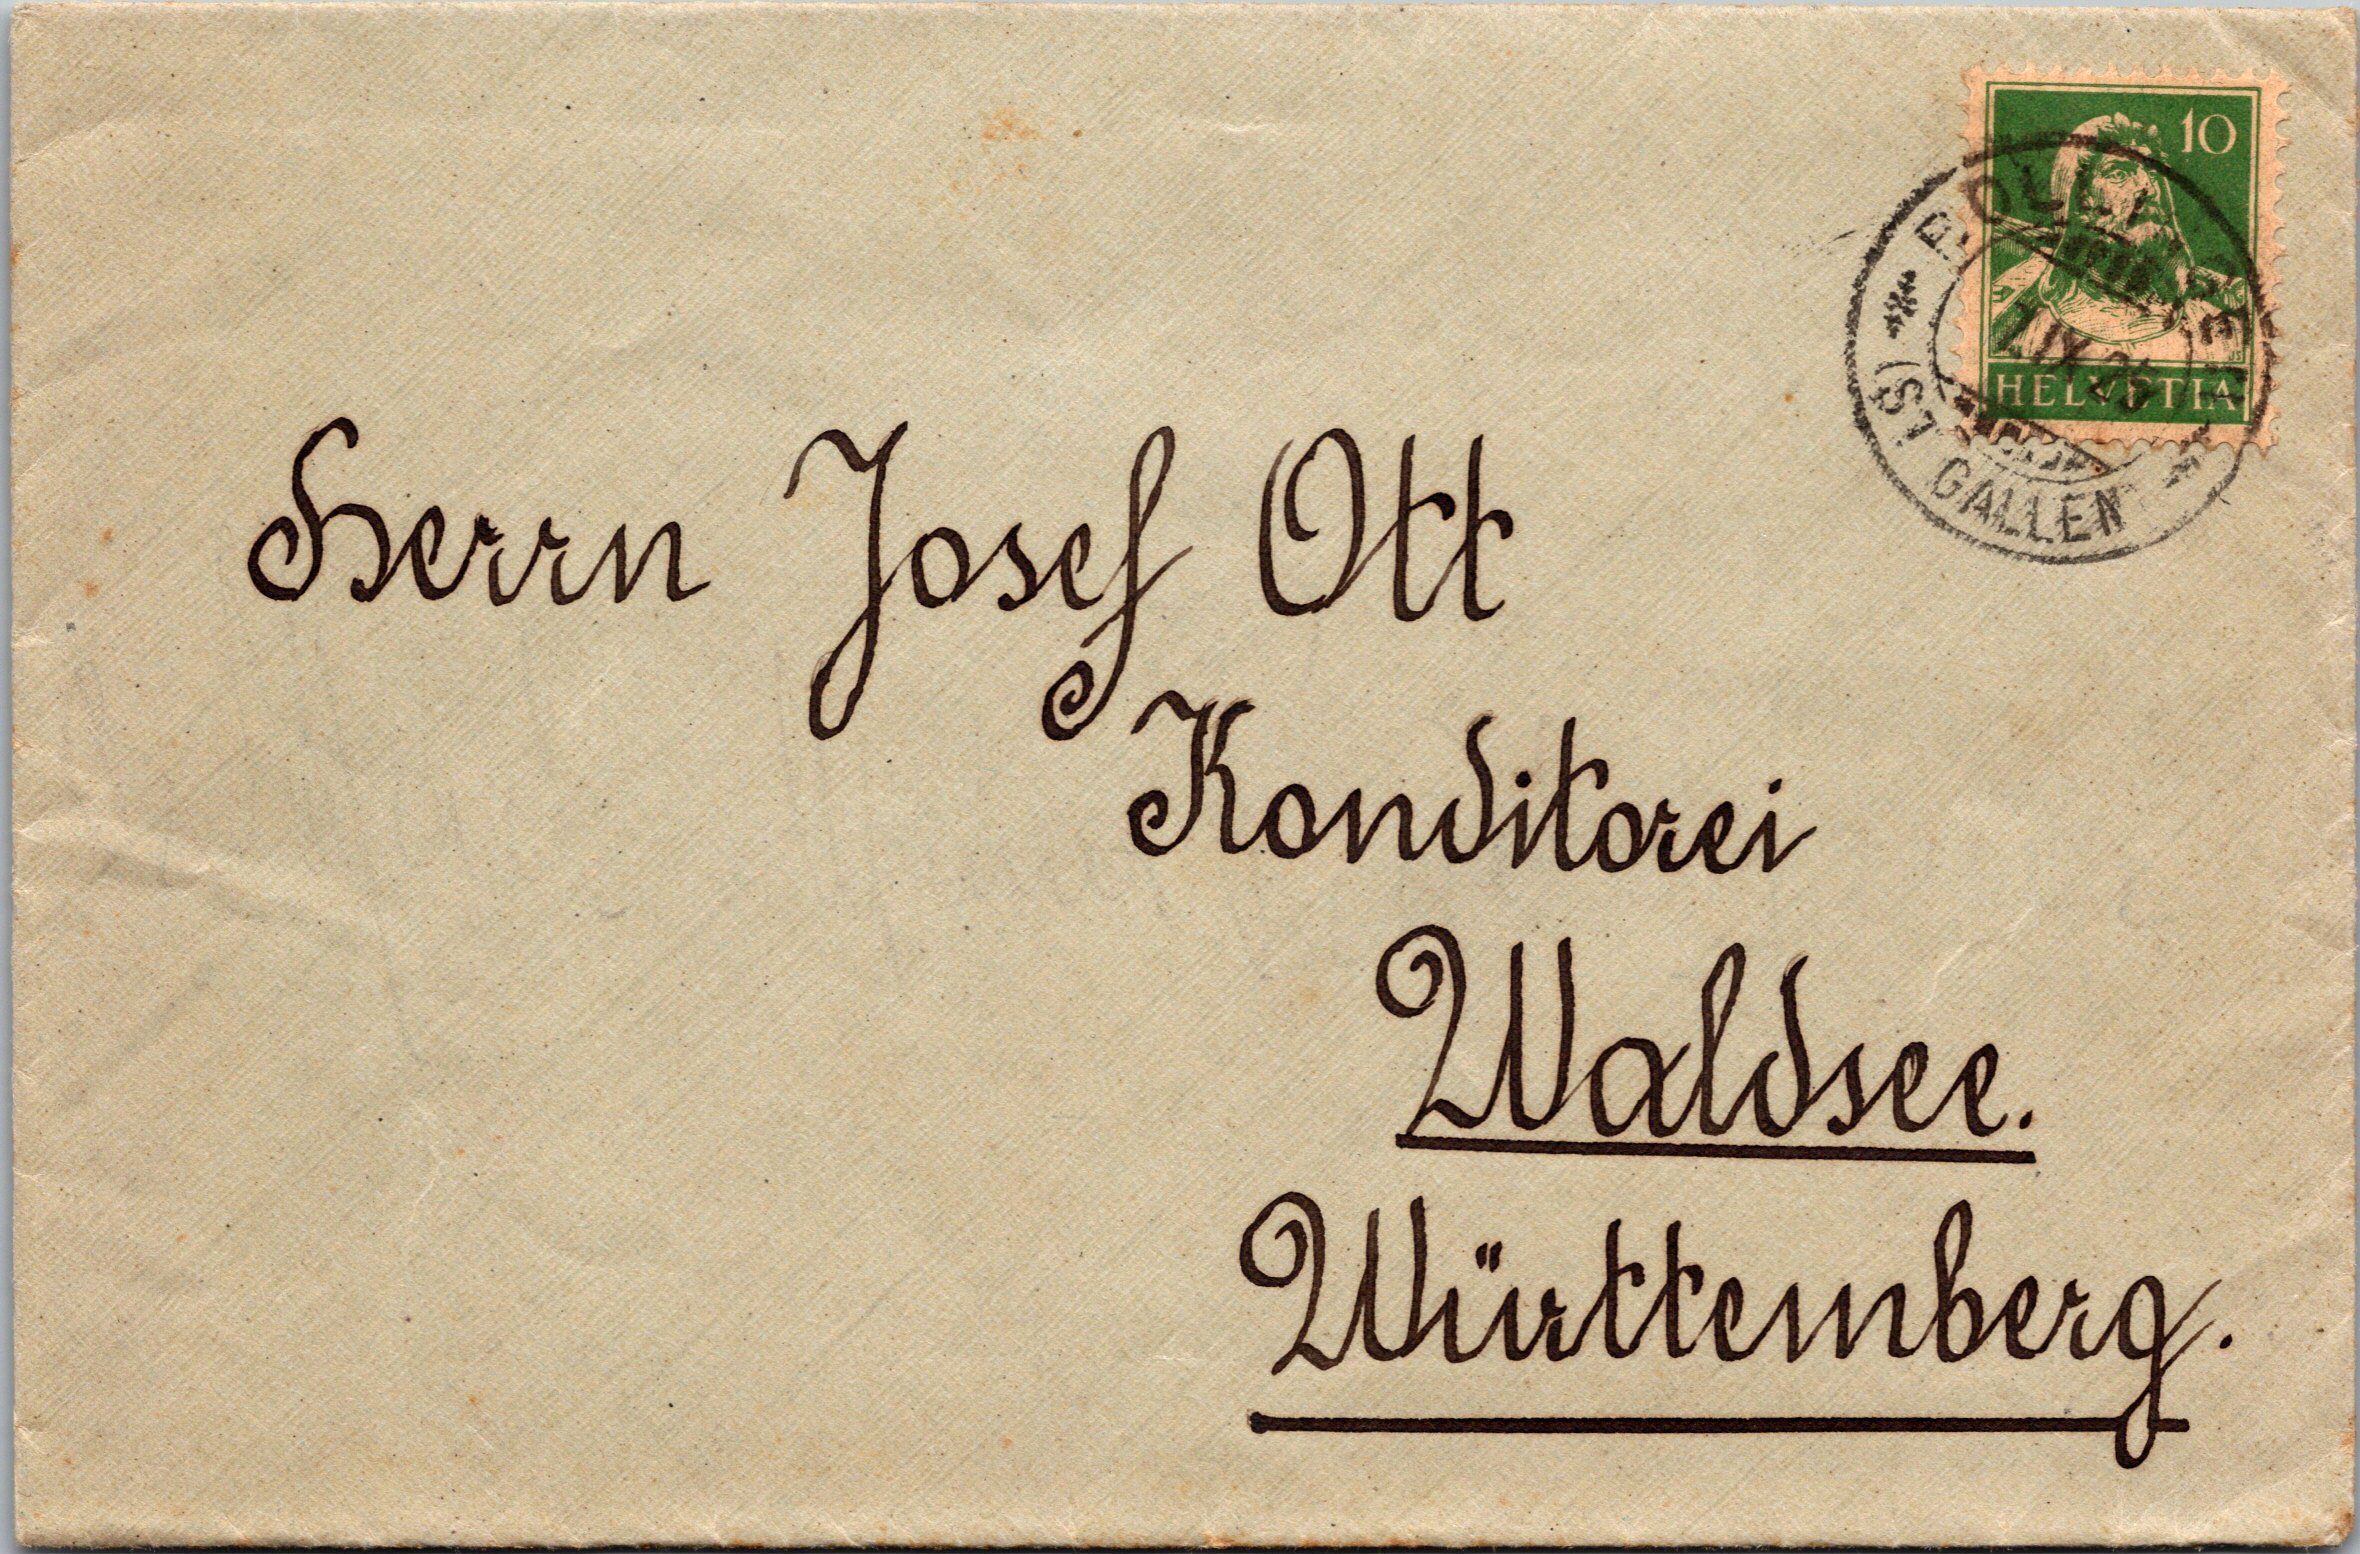 10
HELVETIA
1.IX.25
(ST. GALLEN)
Herrn Josef Ott
Konditorei
Waldsee.
Württemberg.